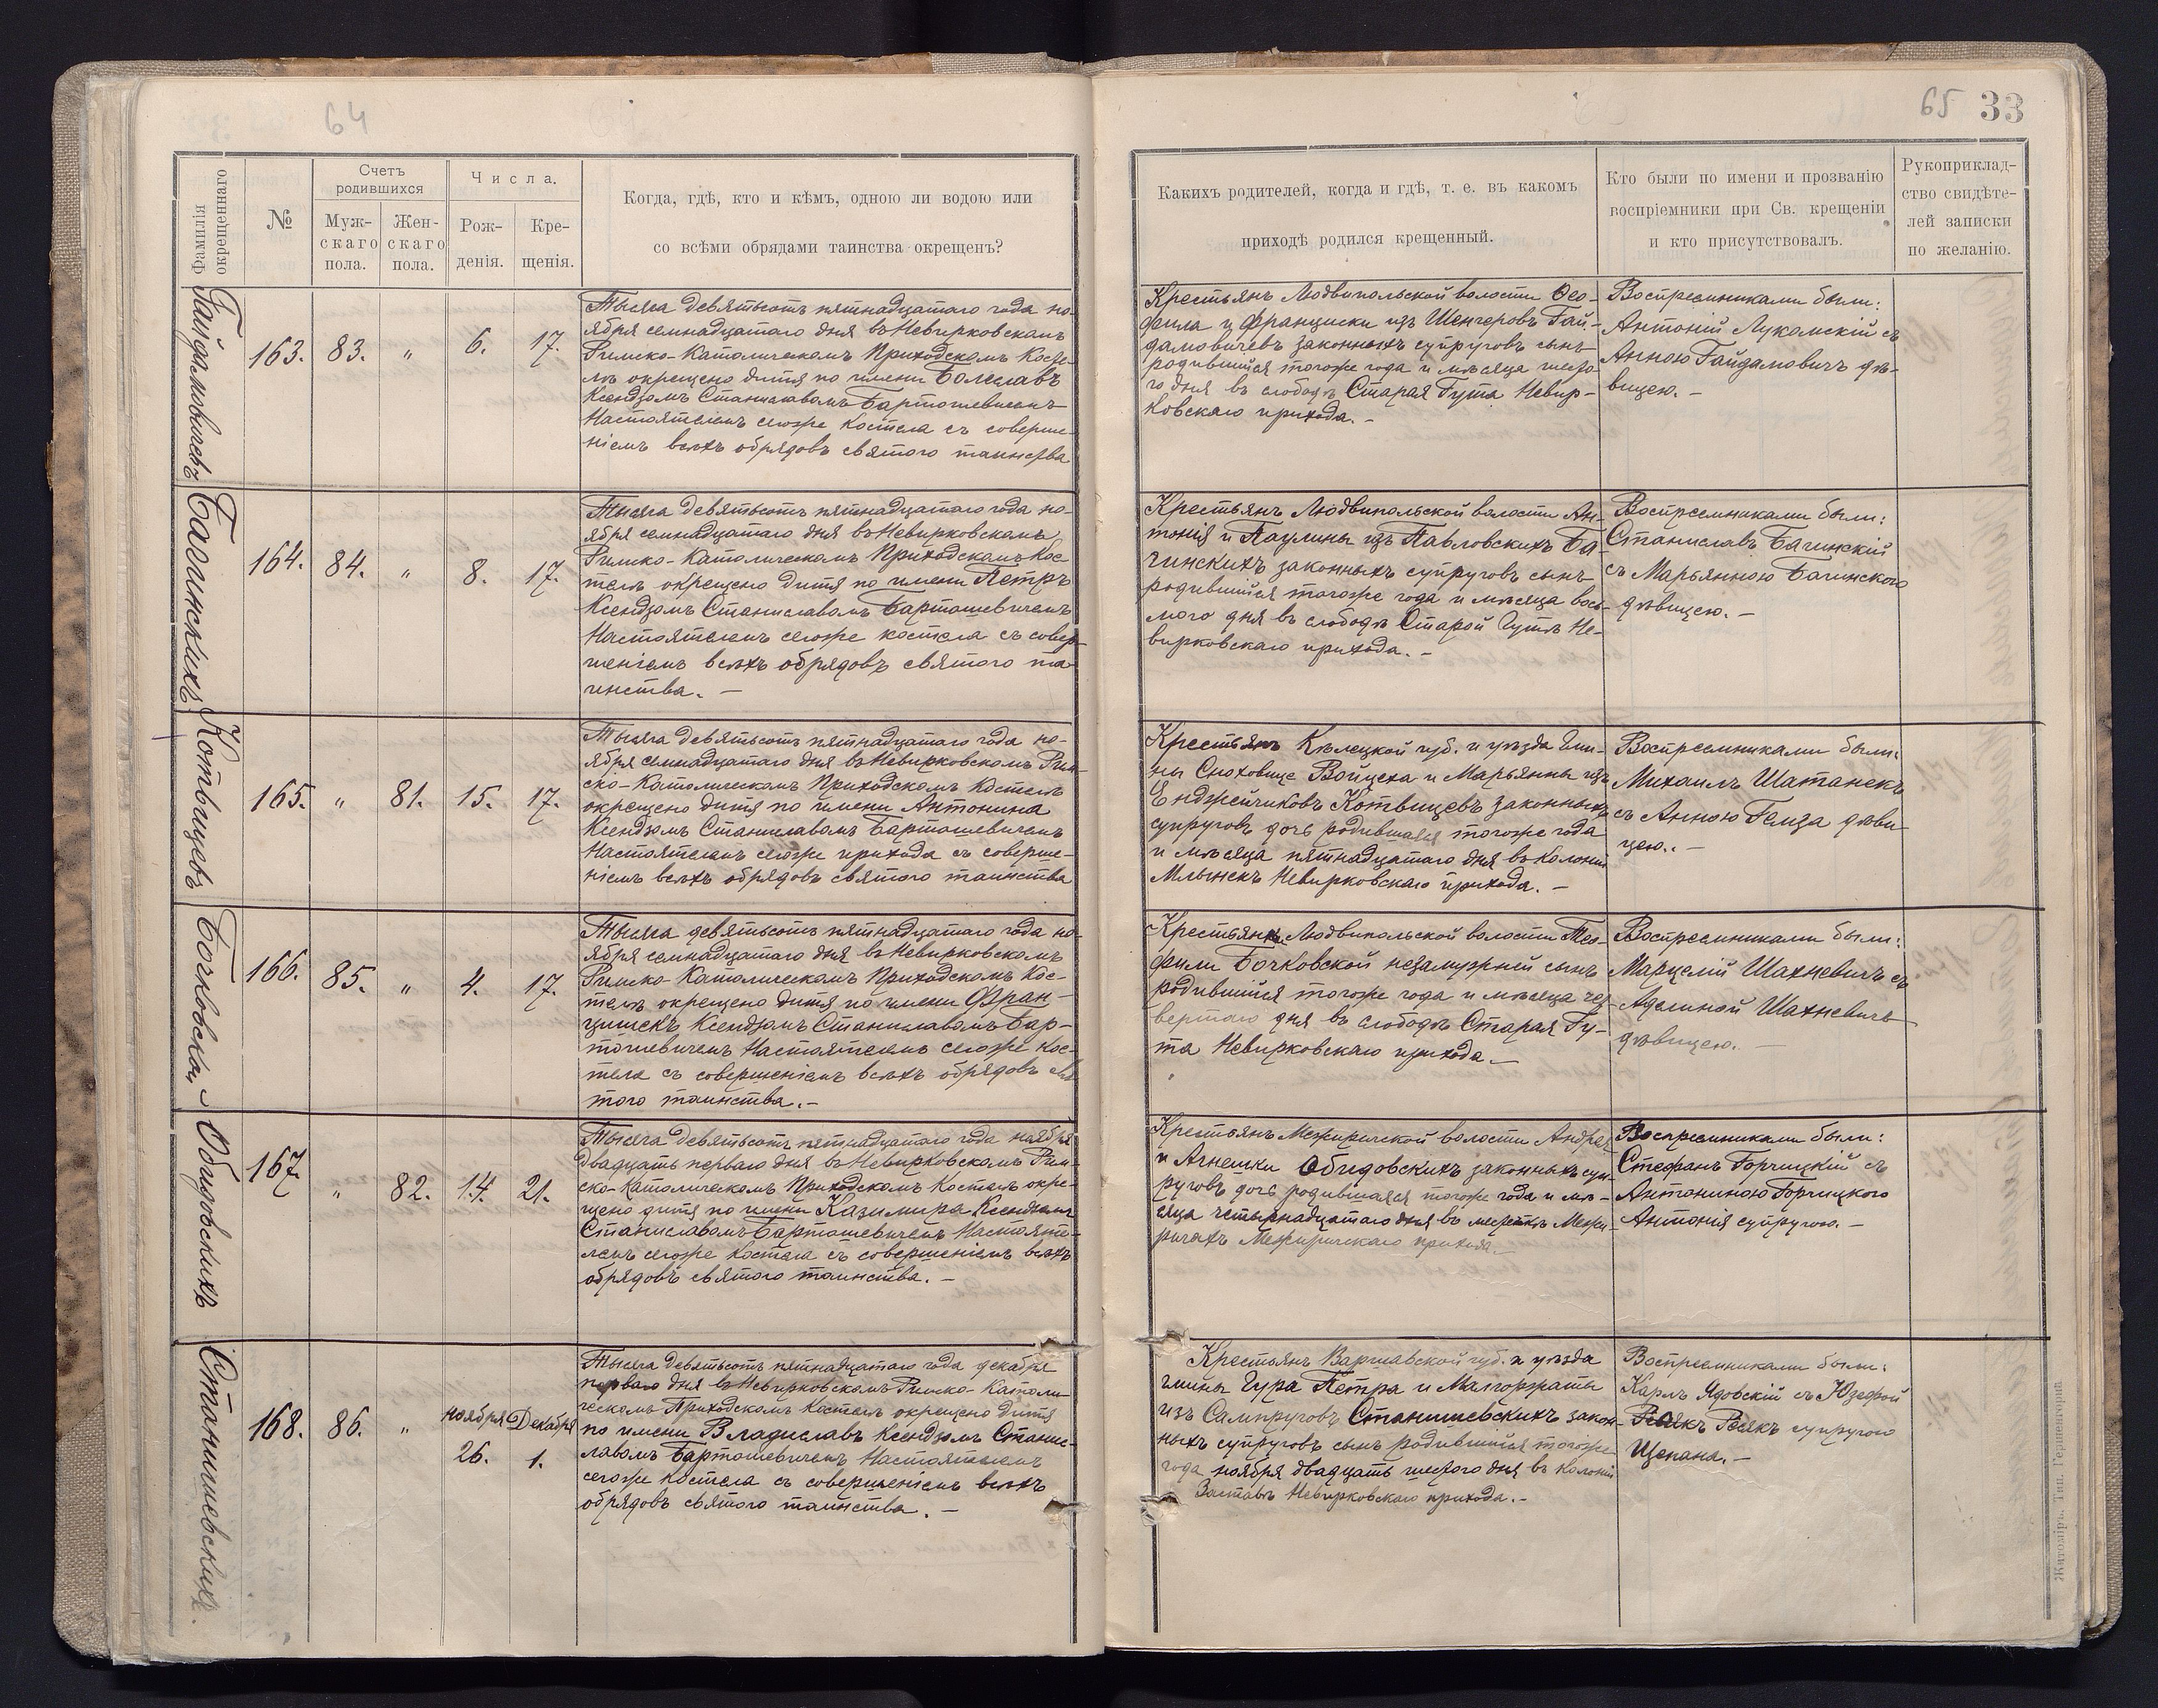 64
65 33
Фамилія
окрещеннаго
№
Счетъ
родившихся
Муж-
скаго
пола.
Жен-
скаго
пола.
Числа.
Рож-
денія.
Кре-
щенія.
Когда, гдѣ, кто и кѣмъ, одною ли водою или
со всѣми обрядами таинства окрещенъ?
Какихъ родителей, когда и гдѣ, т. е. въ какомъ
приходѣ родился крещенный.
Кто были по имени и прозванію
воспріемники при Св. крещеніи
и кто присутствовалъ.
Рукоприклад-
ство свидѣте-
лей записки
по желанію.
Гайдамовичевъ
163. 83. " 6. 17.
Тысяча девятьсотъ пятнадцатаго года но-
ября семнадцатаго дня въ Невирковскомъ
Римско-Католическомъ Приходскомъ Косте-
лѣ окрещено дитя по имени Болеславъ
Ксендзомъ Станиславомъ Бартошевичемъ
Настоятелемъ сегоже Костела съ соверше-
ніемъ всѣхъ обрядовъ святого таинства
Крестьянъ Людвипольской волости Ѳео-
фила и Франциски изъ Шенгеровъ Гай-
дамовичевъ законныхъ супруговъ сынъ
родившійся тогоже года и мѣсяца шесто-
го дня въ слободѣ Старая Гута Невир-
ковскаго прихода. -
Воспреемниками были:
Антоній Лукомскій съ
Анною Гайдамовичъ дѣ-
вицею. -
Багинскихъ
164. 84. " 8. 17.
Тысяча девятьсотъ пятнадцатаго года но-
ября семнадцатаго дня въ Невирковскомъ
Римско-Католическомъ Приходскомъ Кос-
телѣ окрещено дитя по имени Петръ
Ксендзомъ Станиславомъ Бартошевичемъ
Настоятелемъ сегоже костела съ совер-
шеніемъ всѣхъ обрядовъ святого та-
инства. -
Крестьянъ Людвипольской волости Ан-
тонія и Паулины изъ Павловскихъ Ба-
гинскихъ законныхъ супруговъ сынъ
родившійся тогоже года и мѣсяца вось-
мого дня въ слободѣ Старой Гутѣ Не-
вирковскаго прихода. -
Воспреемниками были:
Станиславъ Багинскій
съ Марьянною Багинского
дѣвицею. -
Котвицевъ
165. " 81. 15. 17.
Тысяча девятьсотъ пятнадцатаго года но-
ября семнадцатаго дня въ Невирковскомъ Рим-
ско-Католическомъ Приходскомъ Костелѣ
окрещено дитя по имени Антонина
Ксендзомъ Станиславомъ Бартошевичемъ
Настоятелемъ сегоже прихода съ соверше-
ніемъ всѣхъ обрядовъ святого таинства
Крестьянъ Кѣлецкой губ. и уѣзда Гми-
ны Сноховице Войцеха и Марьянны изъ
Енджейчиковъ Котвицевъ законныхъ
супруговъ дочь родившаяся тогоже года
и мѣсяца пятнадцатаго дня въ Колоніи
Млынекъ Невирковскаго прихода. -
Воспреемниками были:
Михаилъ Шатанекъ
съ Анною Гемза дѣви
цею. -
Бочковской
166. 85. " 4. 17.
Тысяча девятьсотъ пятнадцатаго года но-
ября семнадцатаго дня въ Невирковскомъ
Римско-Католическомъ Приходскомъ Кос-
телѣ окрещено дитя по имени Фран-
цишекъ Ксендзомъ Станиславомъ Бар-
тошевичемъ Настоятелемъ сегоже Кос-
тела съ совершеніемъ всѣхъ обрядовъ свя-
того таинства. -
Крестьянки Людвипольской волости Тео-
фили Бочковской незамужней сынъ
родившійся тогоже года и мѣсяца чет-
вертаго дня въ слободѣ Старая Гу-
та Невирковскаго прихода. -
Воспреемниками были:
Марцелій Шахневичъ съ
Аделиной Шахневичъ
дѣвицею. -
Обидовскихъ
167. " 82. 14. 21.
Тысяча девятьсотъ пятнадцатаго года ноября
двадцать перваго дня въ Невирковскомъ Рим-
ско-Католическомъ Приходскомъ Костелѣ окре-
щено дитя по имени Казимира Ксендзомъ
Станиславомъ Бартошевичемъ Настояте-
лемъ сегоже Костела съ совершеніемъ всѣхъ
обрядовъ святого таинства. -
Крестьянъ Межиричской волости Андрея
и Агнешки Обидовскихъ законныхъ суп-
руговъ дочь родившаяся тогоже года и мѣ-
сяца четырнадцатаго дня въ местечкѣ Межи-
ричахъ Межиричскаго прихода. -
Воспреемниками были:
Стефанъ Горчицкій съ
Антониною Горчицкого
Антонія супругою. -
Станишевскихъ.
168. 86. " ноября 26. Декабря 1.
Тысяча девятьсотъ пятнадцатаго года декабря
перваго дня въ Невирковскомъ Римско-Католи-
ческомъ Приходскомъ Костелѣ окрещено дитя
по имени Владиславъ Ксендзомъ Станис-
лавомъ Бартошевичемъ Настоятелемъ
сегоже Костела съ совершеніемъ всѣхъ
обрядовъ святого таинства. -
Крестьянъ Варшавской губ. и уѣзда
гмины Гура Петра и Малгоржаты
изъ Сампруговъ Станишевскихъ закон-
ныхъ супруговъ сынъ родившійся тогоже
года ноября двадцать шестого дня въ Колоніи
Заставѣ Невирковскаго прихода. -
Воспреемниками были:
Карлъ Ядовскій съ Юзефой
Ресякъ супругою
Щепана. -
Житоміръ. Тип.